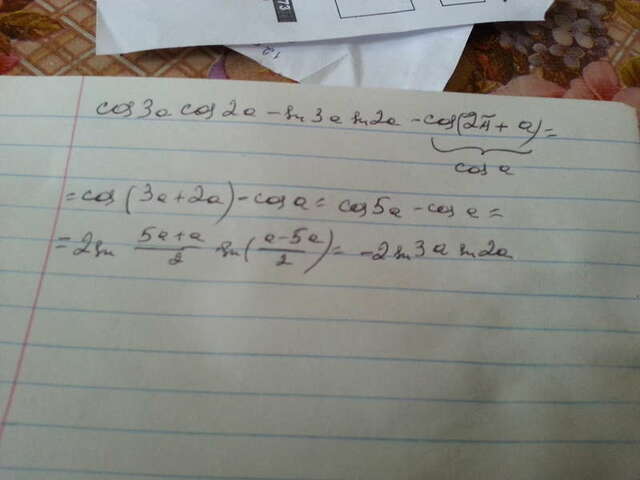 cos3a cos2a - sin3a sin2a - cos(2π + a) =
cos a
= cos(3a+2a) - cos a = cos5a - cos a =
= 2sin (5a+a)/2 sin((a-5a)/2) = -2sin3a sin2a